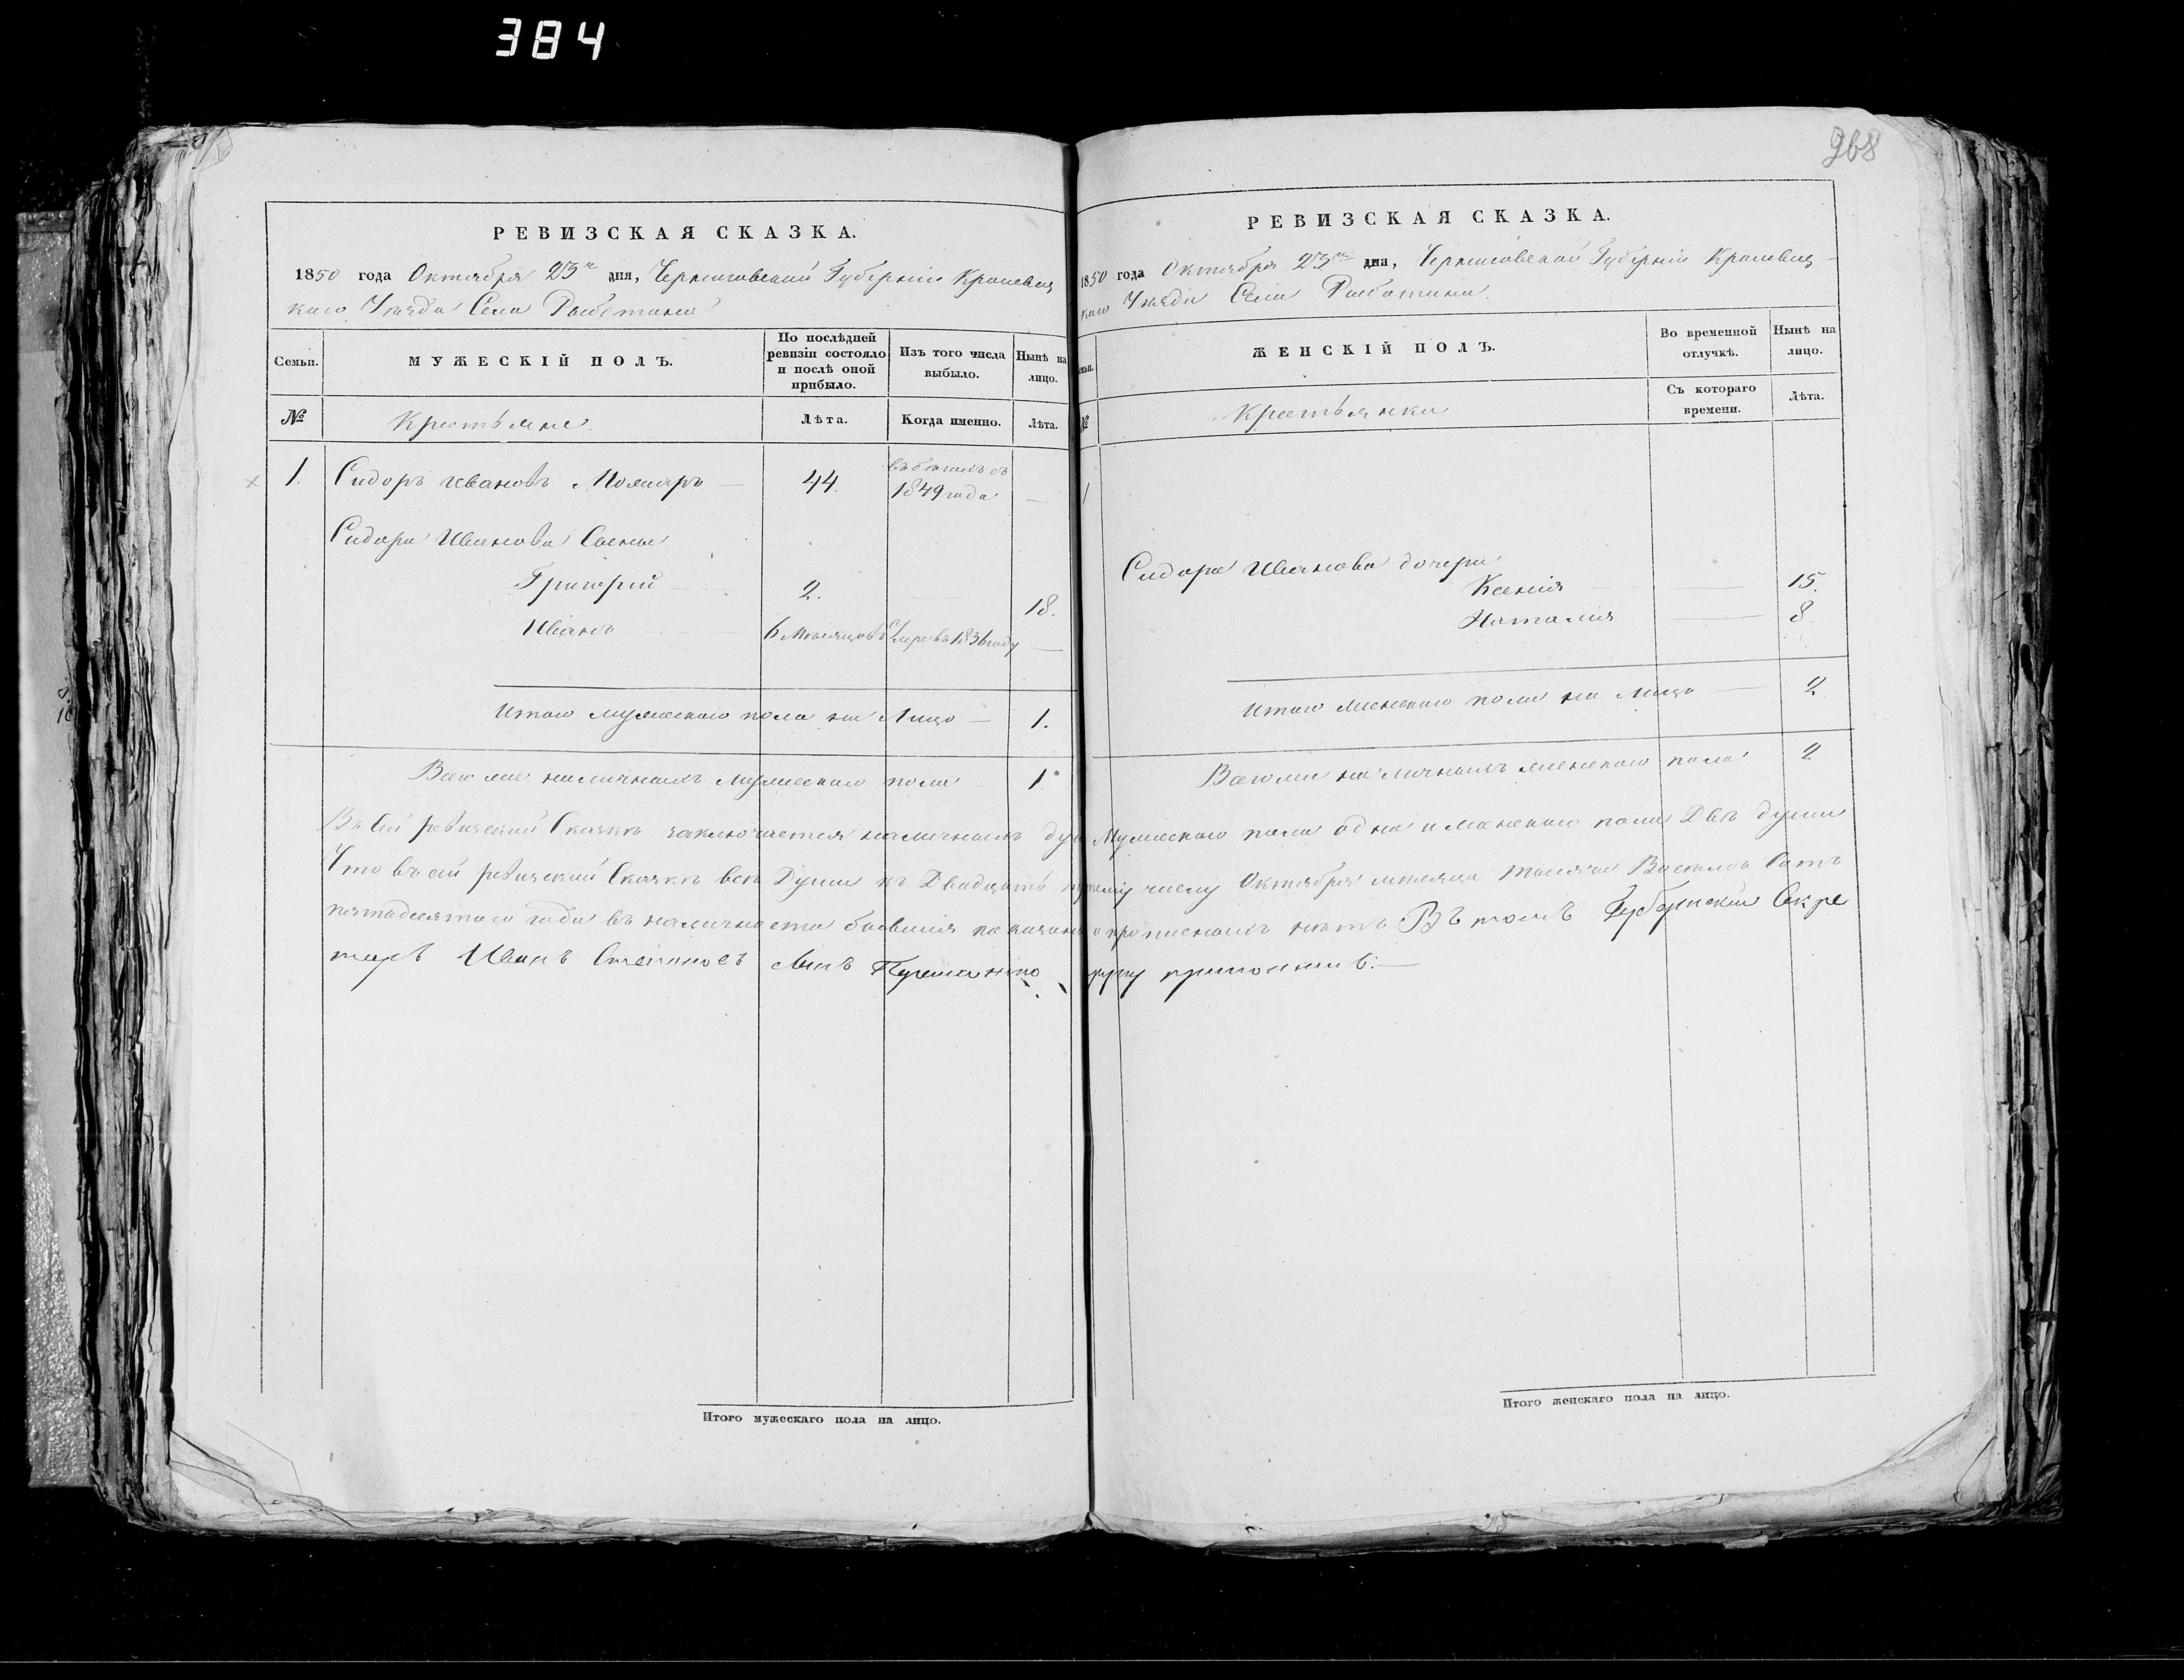 384
968
РЕВИЗСКАЯ СКАЗКА.
1850 года Октября 23го дня, Черниговской Губерніи Кролевец
каго Уезда Села Рыботина
Семьи.
МУЖЕСКІЙ ПОЛЪ.
По послѣдней ревизіи состояло и послѣ оной прибыло.
Изъ того числа выбыло.
Нынѣ на лицо.
№
Крестьяне.
Лѣта.
Когда именно.
Лѣта.
1. Сидоръ Ивановъ 44. въ бегахъ съ 1849 года —
Сидора Иванова Сыновья
Григорій 2. — 18.
Иванъ 6 Месяцовъ Умре въ 1836 году —
Итого мужескаго пола на Лицо — 1.
Всего же наличныхъ мужескаго пола 1.
РЕВИЗСКАЯ СКАЗКА.
1850 года Октября 23го дня, Черниговской Губерніи Кролевец-
каго Уезда Села Рыботина.
ЖЕНСКІЙ ПОЛЪ.
Во временной отлучкѣ.
Нынѣ на лицо.
№
Крестьянки
Съ котораго времени.
Лѣта.
1
Сидора Иванова дочери
Ксенія — 15.
Наталия — 8.
Итого женскаго пола на Лицо — 2.
Всего же наличныхъ женскаго пола 2
Въ сей ревизской Сказкѣ заключается наличныхъ душ Мужескаго пола одна и женскаго пола Двѣ души
Что въ сей ревизской Сказкѣ всѣ Души къ Двадцать третему числу Октября месяца тысяча Восемь Сотъ
пятадесятого года въ наличности бывшия показаны и прописныхъ нѣтъ. Въ томъ Губернский Секре
тарь Иванъ Степановъ Сынъ руку приложилъ. —
Итого мужескаго пола на лицо.
Итого женскаго пола на лицо.